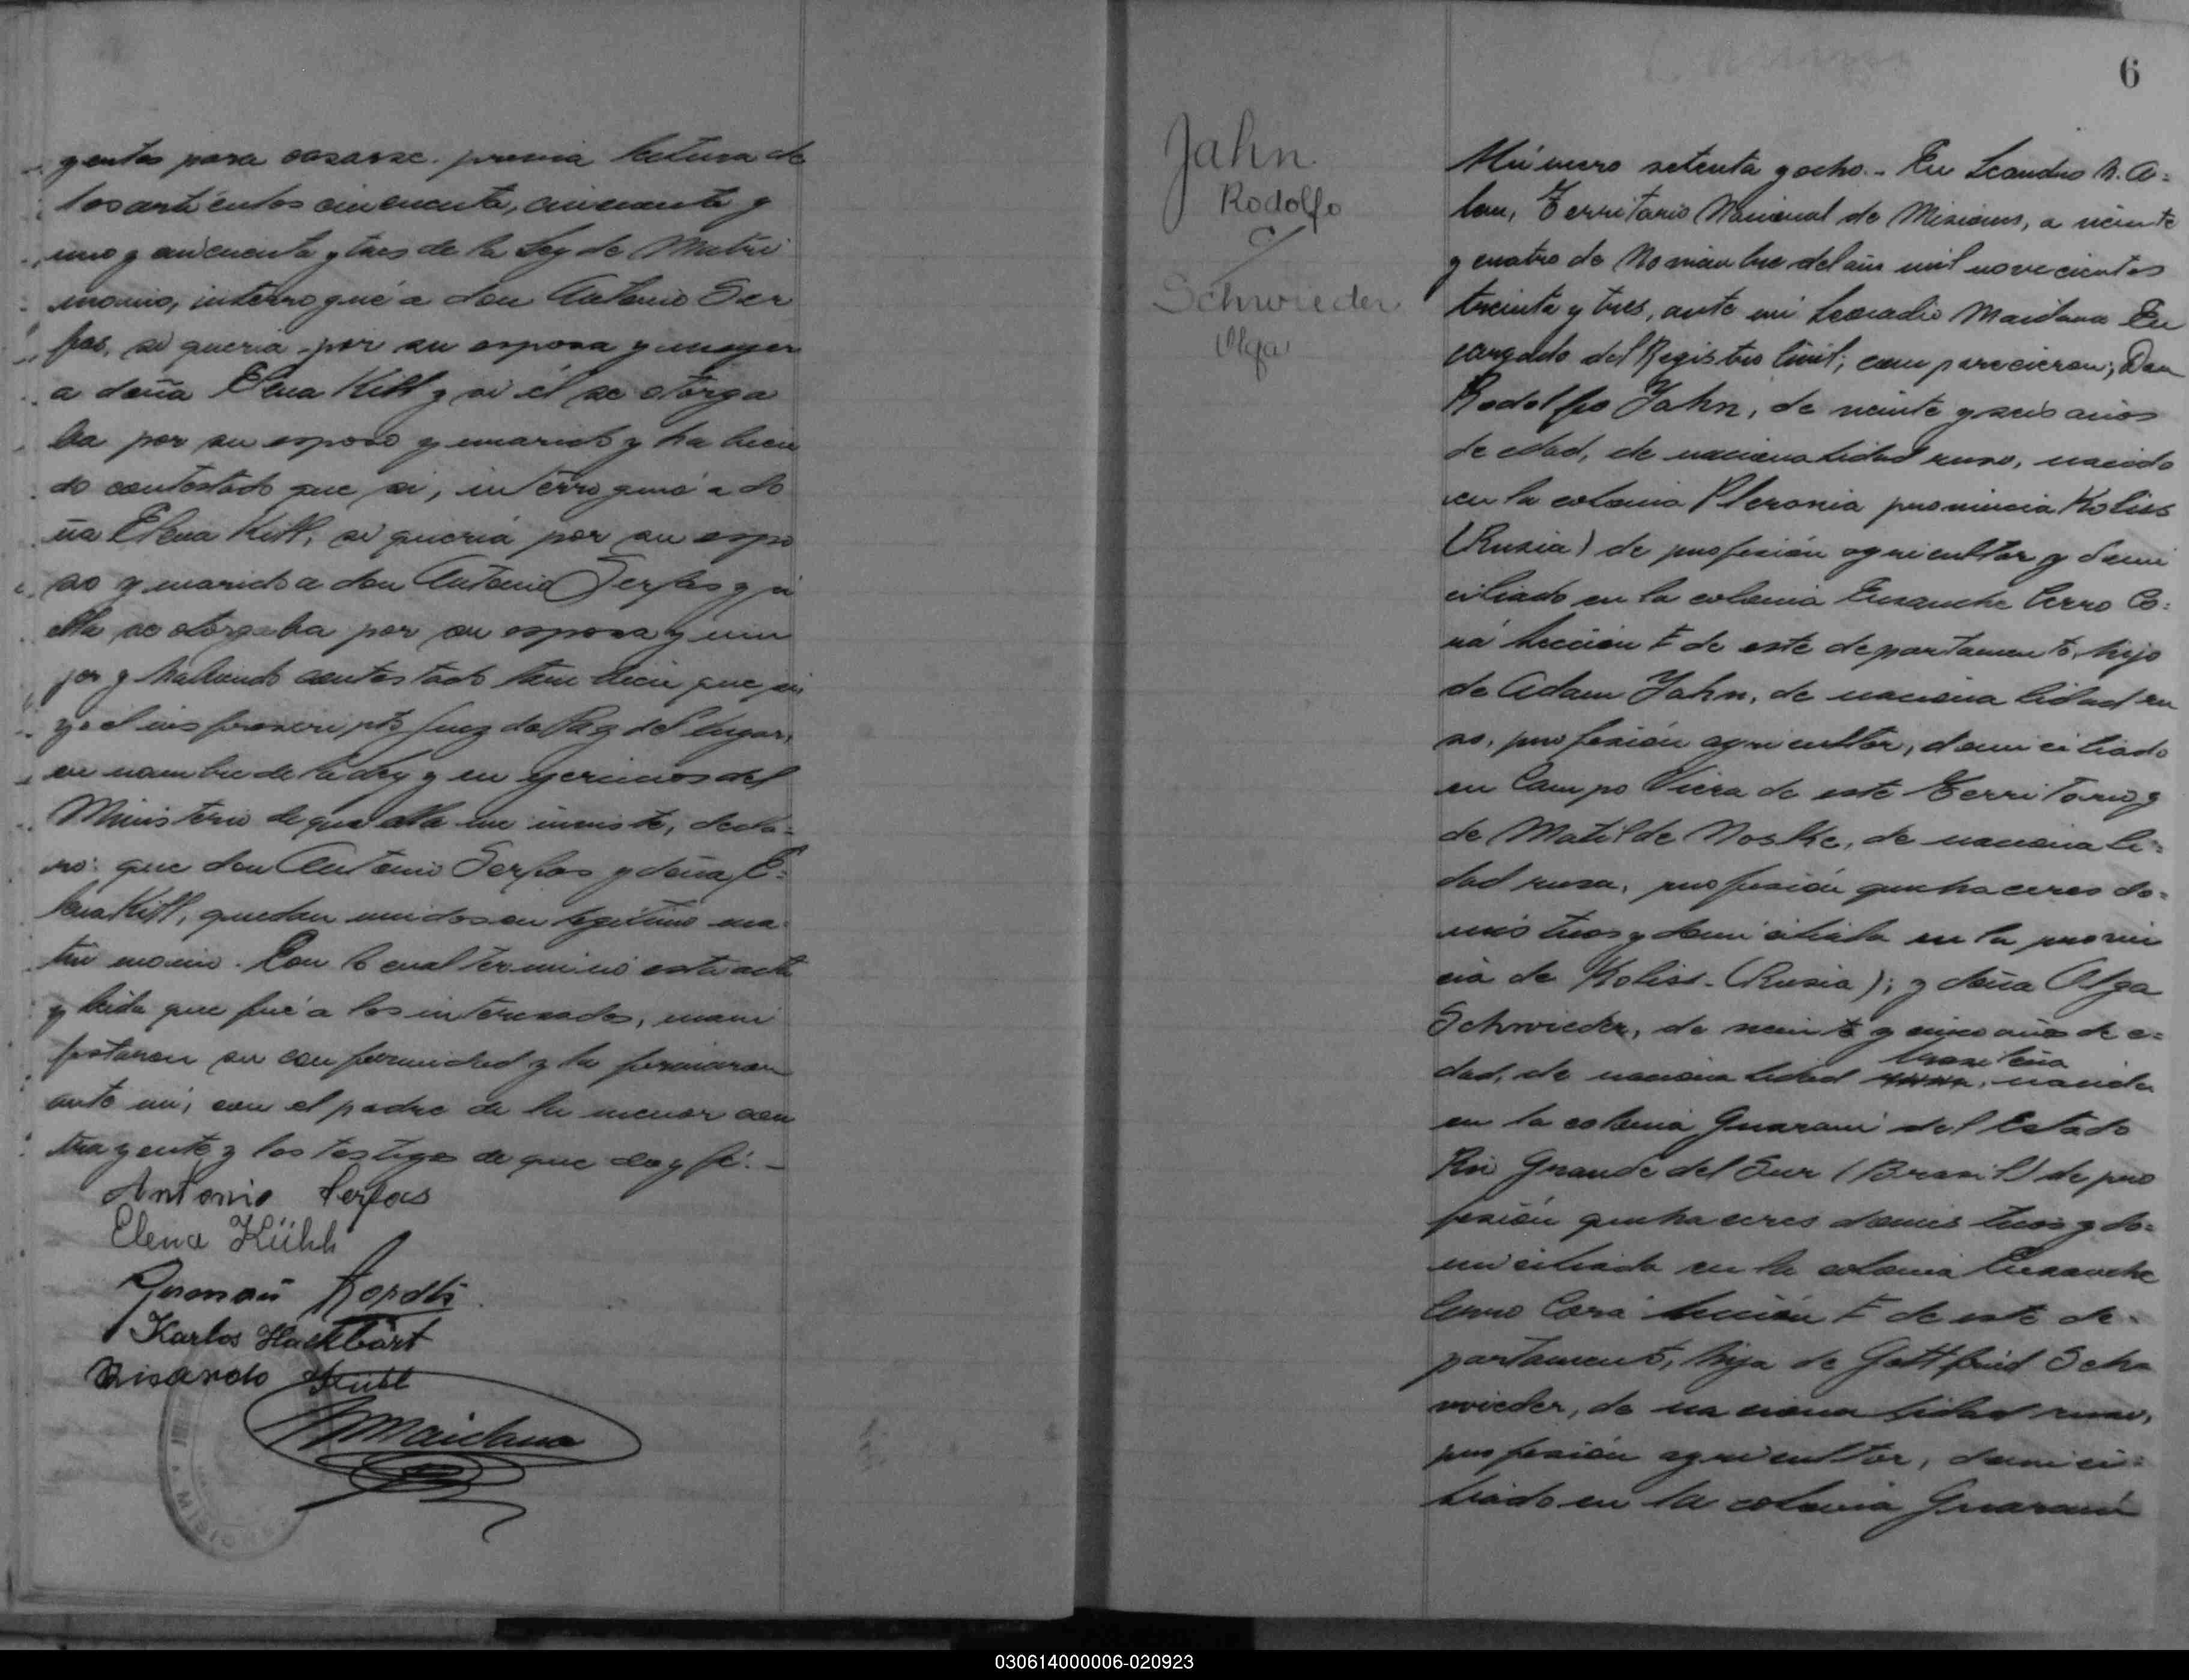 gentes para casarse. previa lectura de
los artículos cincuenta, cincuenta y
uno y cincuenta y tres de la Ley de Matri
monio, interrogué a don Antonio Ser
fas, si queria por su esposa y muger
a doña Elena Kitl y si él se otorga
ba por su esposo y marido y ha bien
do contestado que si, interrogué a do
ña Elena Kitl, si queriá por su espo
so y marido a don Antonio Serfas y si
ella se otorgaba por su esposa y mu
jer y habiendo contestado tam bien que si
yo el infrascripto Juez de Paz del lugar,
en nombre de la Ley y en ejercicios del
Ministerio de que ella me inviste, decla-
ro: que don Antonio Serfas y doña E-
lena Kitl, quedan unidos en legitimo ma-
tri monio. Con lo cual terminó esta acta
y leida que fué a los interesados, mani
festaron su conformidad y la firmaron
ante mi, con el padre de la menor con
trayente y los testigos de que doy fé. -
Antonio Serfas
Elena Kühl
Germán
Karlos Hackbart
Ricardo
Maidana
MISIO
6
Jahn
Rodolfo
c/
Schwieder
Olga
Número setenta y ocho. - En Leandro N. A-
lem, Territorio Nacional de Misiones, a veinte
y cuatro de Noviembre del año mil novecientos
treinta y tres, ante mi Leocadio Maidana En
cargado del Registro Civil; comparecieron; Don
Rodolfo Jahn, de veinte y seis años
de edad, de nacionalidad ruso, nacido
en la colonia Pleronia provincia Koliss
(Rusia) de profesión agricultor y domi
ciliado en la colonia Ensanche Cerro Co-
rá Sección F de este departamento, hijo
de Adam Jahn, de nacionalidad ru
so, profesión agricultor, domiciliado
en Campo Viera de este Territorio y
de Matilde Noske, de nacionali-
dad rusa, profesión quehaceres do-
mésticos y domiciliada en la provin
cia de Koliss - (Rusia); y doña Olga
Schwieder, de veinte y cinco años de e-
dad, de nacionalidad brasileña, nacida
en la colonia Guarani del Estado
Rio Grande del Sur (Brasil) de pro
fesión quehaceres domésticos y do-
miciliada en la colonia Ensanche
Cerro Corá Sección F de este de-
partamento, hija de Gottfried Sch
wieder, de nacionalidad ruso,
profesión agricultor, domici-
liado en la colonia Guarani
030614000006-020923